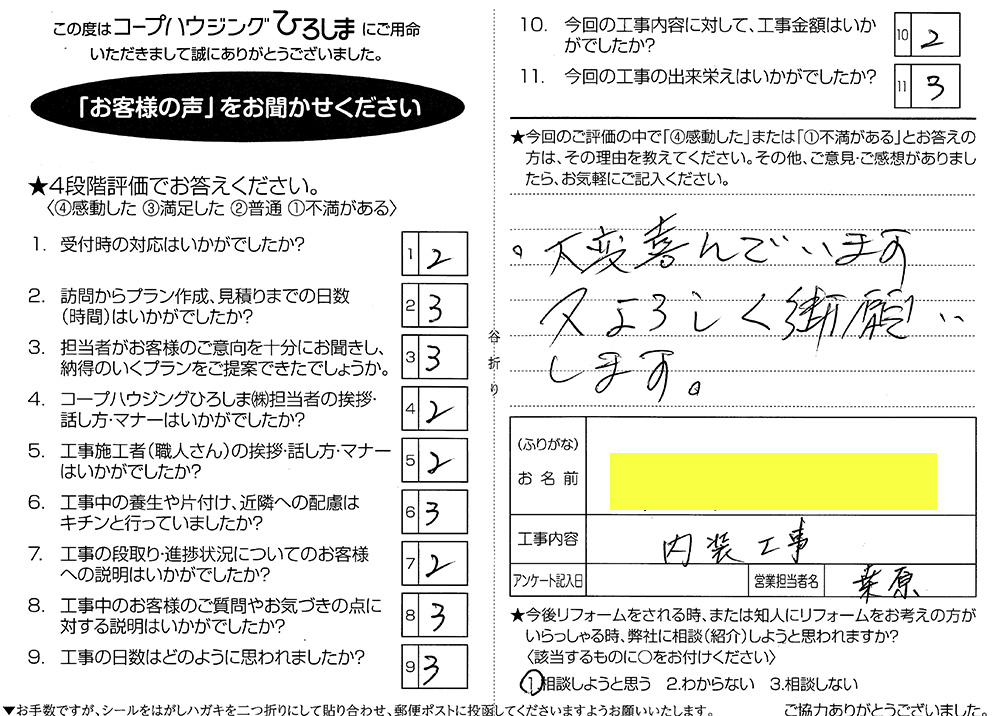 この度はコープハウジングひろしまにご用命
いただきまして誠にありがとうございました。
「お客様の声」をお聞かせください
★4段階評価でお答えください。
〈④感動した ③満足した ②普通 ①不満がある〉
1. 受付時の対応はいかがでしたか?
1 2
2. 訪問からプラン作成、見積りまでの日数
(時間)はいかがでしたか?
2 3
3. 担当者がお客様のご意向を十分にお聞きし、
納得のいくプランをご提案できたでしょうか。
3 3
4. コープハウジングひろしま㈱担当者の挨拶・
話し方・マナーはいかがでしたか?
4 2
5. 工事施工者(職人さん)の挨拶・話し方・マナー
はいかがでしたか?
5 2
6. 工事中の養生や片付け、近隣への配慮は
キチンと行っていましたか?
6 3
7. 工事の段取り・進捗状況についてのお客様
への説明はいかがでしたか?
7 2
8. 工事中のお客様のご質問やお気づきの点に
対する説明はいかがでしたか?
8 3
9. 工事の日数はどのように思われましたか?
9 3
▼お手数ですが、シールをはがしハガキを二つ折りにして貼り合わせ、郵便ポストに投函してくださいますようお願いいたします。
谷折り
10. 今回の工事内容に対して、工事金額はいか
がでしたか?
10 2
11. 今回の工事の出来栄えはいかがでしたか?
11 3
★今回のご評価の中で「④感動した」または「①不満がある」とお答えの
方は、その理由を教えてください。その他、ご意見・ご感想がありまし
たら、お気軽にご記入ください。
。大変喜んでいます
又よろしく御願い
します。
(ふりがな)
お名前
工事内容
内装工事
アンケート記入日
営業担当者名
桒原
★今後リフォームをされる時、または知人にリフォームをお考えの方が
いらっしゃる時、弊社に相談(紹介)しようと思われますか?
〈該当するものに○をお付けください〉
1.相談しようと思う 2.わからない 3.相談しない
ご協力ありがとうございました。